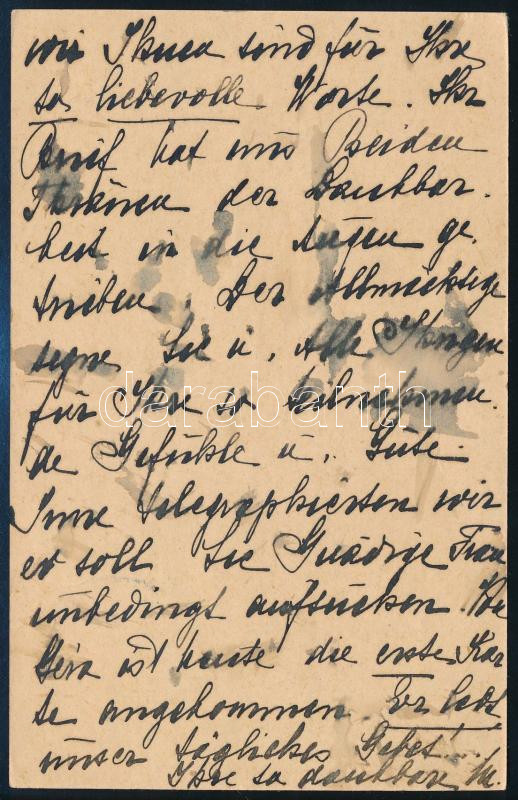 wir Ihnen sind für Ihre
so liebevolle Worte. Ihr
Brief hat uns Beiden
Thränen der Dankbar-
keit in die Augen ge-
trieben. Der Allmächtige
segne Sie u. Alle Ihrigen
für Ihre so teilnehmen-
de Gefühle u. Güte.
Imre telegraphierten wir
er soll Sie Gnädige Frau
unbedingt aufsuchen. Von
Géza ist heute die erste Kar-
te angekommen. Er lebt
unser tägliches Gebet!
Ihre so dankbare M.
darabanth